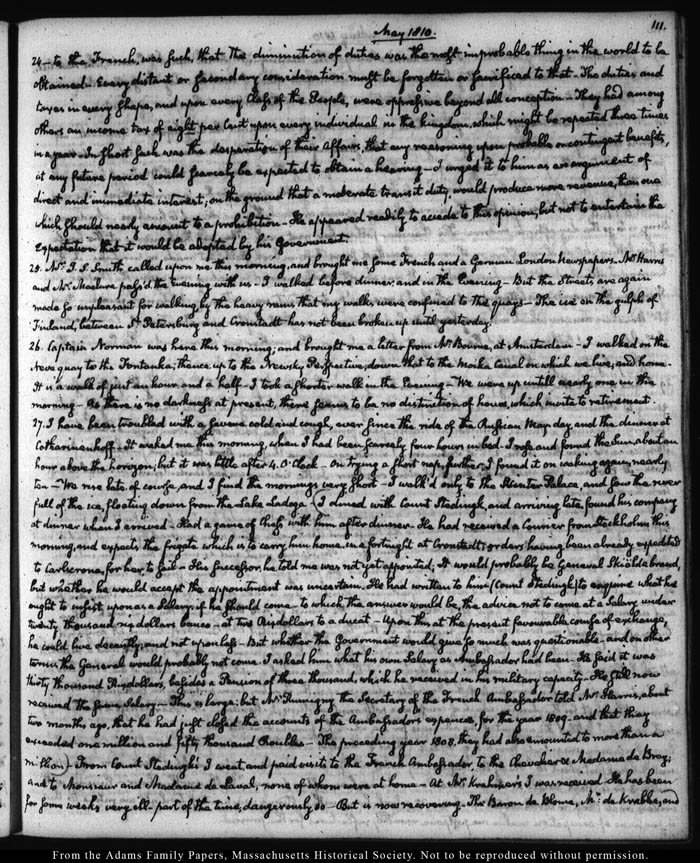 May 1810.
111.
24 – to the French, was such, that the diminution of duties was the most improbable thing in the world to be
obtained. Every distant or secondary consideration must be forgotten or sacrificed to that – The duties and
taxes in every shape, and upon every Class of the People, were oppressive beyond all conception – They had among
others an income tax of eight per Cent upon every individual in the kingdom, which might be repeated three times
in a year – In short such was the desperation of their Affairs, that any reasoning upon probable or contingent benefits,
at any future period could scarcely be expected to obtain a hearing – I urged it to him as an argument of
direct and immediate interest; on the ground that a moderate transit duty, would produce more revenue, than one
which should nearly amount to a prohibition – He appeared readily to accede to this opinion, but not to entertain the
Expectation that it would be adopted by his Government.
25. Mr. J. S. Smith called upon me this morning, and brought me some French and a German London Newspapers. Mr. Harris
and Mr. Maclure pass'd the Evening with us – I walked before dinner, and in the Evening – But the Streets are again
made so unpleasant for walking, by the heavy rains that my walks were confined to the quays – The ice on the gulph of
Finland, between St. Petersburg and Cronstadt has not been broken up until yesterday.
26. Captain Norman was here this morning; and brought me a letter from Mr. Bourne, at Amsterdam – I walked on the
Neva quay to the Fontanka; thence up to the Newsky Perspective, down that to the Moika Canal on which we live, and home.
It is a walk of just an hour and a half – I took a shorter walk in the Evening – We were up untill nearly one in the
morning – As there is no darkness at present, there seems to be no distinction of hours, which invite to retirement.
27. I have been troubled with a severe cold and cough, ever since the ride of the Russian May day, and the dinner at
Catharinenhoff – It waked me this morning, when I had been scarcely four hours in bed. I rose and found the Sun about an
hour above the horizon; but it was little after 4. O'Clock – On trying a short nap, further, I found it on waking again, nearly
ten – We rise late of course, and I find the mornings very short – I walk'd only to the Winter Palace, and saw the river
full of the ice, floating down from the Lake Ladoga (I dined with Count Stedingk, and arriving late, found his company
at dinner when I arrived – Had a game of Chess with him after dinner. He had received a Courier from Stockholm this
morning, and expects the frigate which is to carry him home, in a fortnight at Cronstadt; orders having been already expedited
to Carlscrona, for her, to sail – His Successor, he told me was not yet appointed; It would probably be General Skiöldebrand,
but whether he would accept the appointment was uncertain. He had written to him (Count Stedingk) to enquire what he
ought to insist upon as a Salary, if he should come – to which, the answer would be, the advice not to come at a Salary under
twenty thousand rixdollars banco – at two Rixdollars to a ducat – Upon this at the present favourable course of exchange,
he could live decently, and not upon less – But whether the Government would give so much was questionable – and on other
terms the General would probably not come – I asked him what his own Salary as Ambassador had been – He said it was
thirty thousand Rixdollars, besides a Pension of three thousand, which he received in his military capacity – He still now
received the same Salary – This is large: but Mr. Rumigny the Secretary of the French Ambassador told Mr. Harris, about
two months ago, that he had just closed the accounts of the Ambassador's expences, for the year 1809 – and that they
exceeded one million and fifty thousand Roubles – The preceding year 1808, they had also amounted to more than a
million) From Count Stedingk's I went, and paid visits to the French Ambassador, to the Chevalier & Madame de Bray;
and to Monsieur and Madame de Laval, none of whom were at home – At Mr. Krehmer's I was received. He has been
for some weeks very ill – part of the time, dangerously so – But is now recovering. The Baron de Blome, Mr. de Krabbe, and
From the Adams Family Papers, Massachusetts Historical Society. Not to be reproduced without permission.